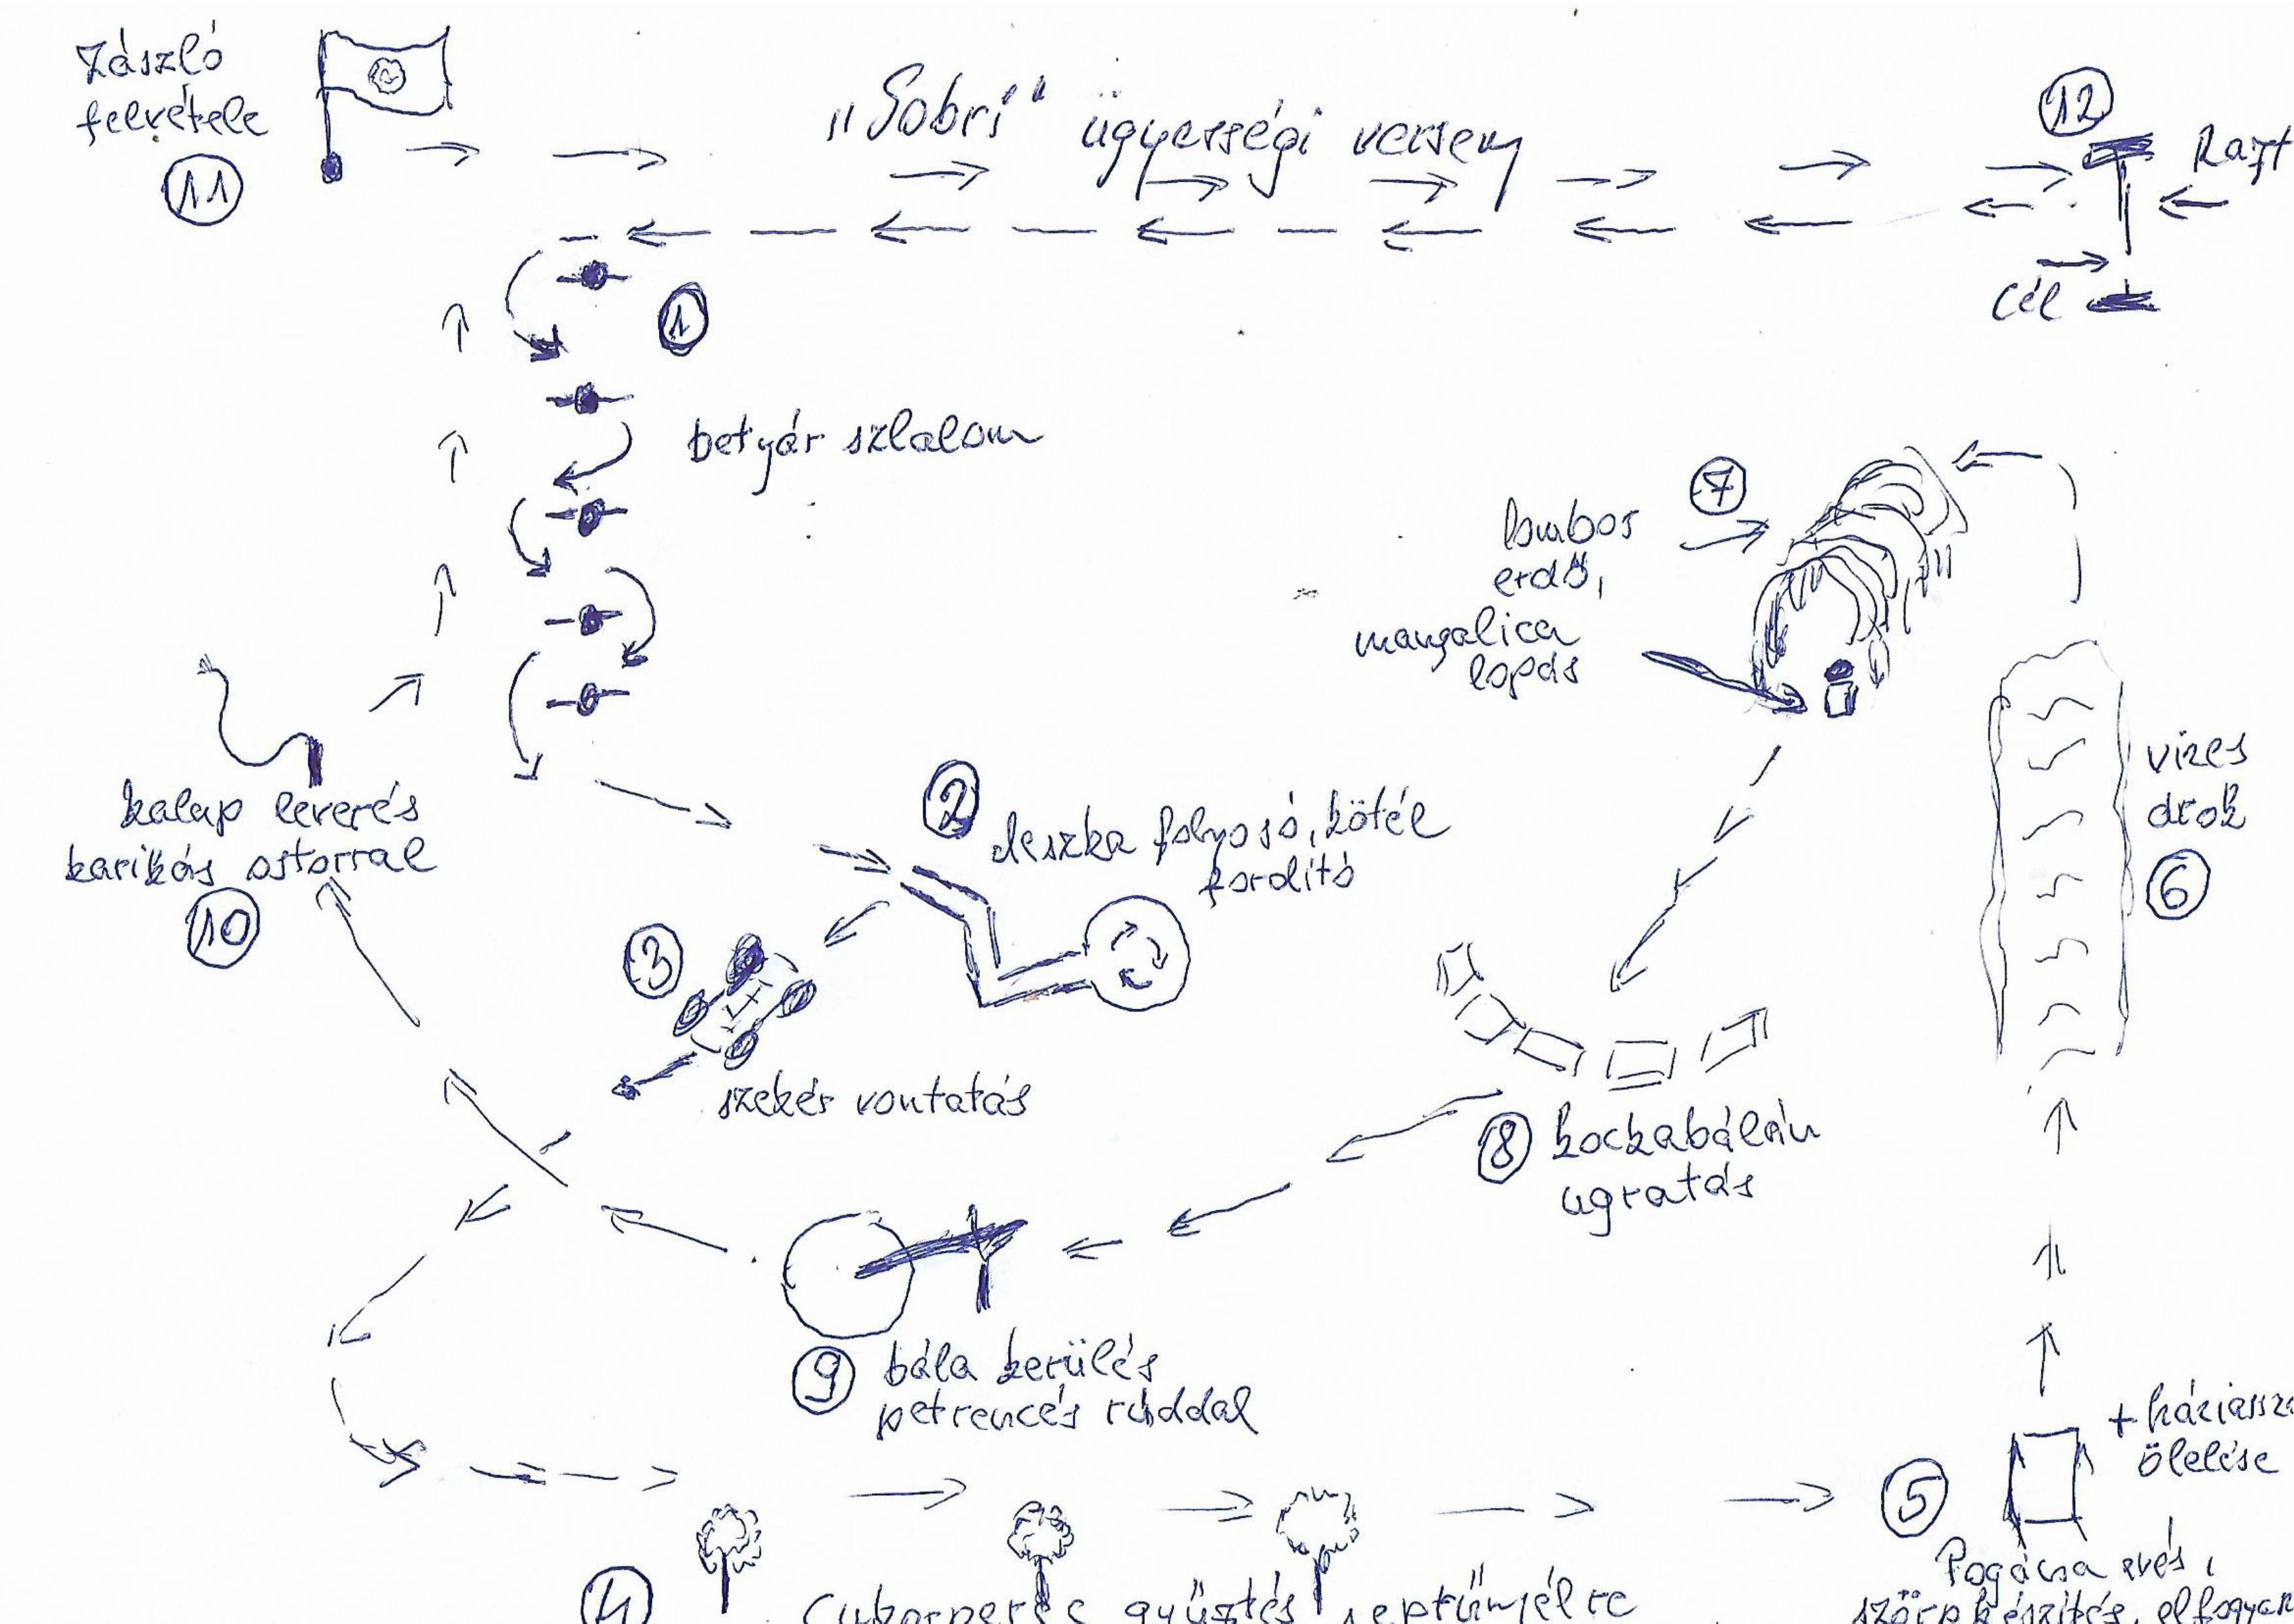 Zászló
felvétele
11
„Sobri" ügyességi verseny
12
Rajt
Cél
1
betyár szlalom
7
lombos
erdő,
mangalica
lopás
2
deszka folyosó, kötél
fordító
kalap leverés
karikás ostorral
10
3
szekér vontatás
vizes
árok
6
8 kockabálán
ugratás
9 bála kerülés
petrencés rúddal
+ háziassz
ölelése
5
Pogácsa evés,
szörp készítés, elfogyas
4 Cukorperec gyűjtés